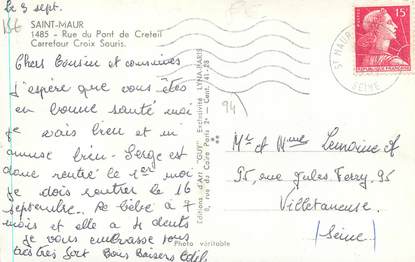 le 3 sept.
SAINT-MAUR
1485 - Rue du Pont de Créteil
Carrefour Croix Souris.
Chers Cousins et cousines
j'espère que vous êtes
en bonne santé moi
je vais bien et m
amuse bien. Serge est
donc rentré le 1er moi
je dois rentrer le 16
septembre. Le bébé à 7
mois et elle a 4 dents
je vous embrasse tous
très très fort Bons Baisers
Photo véritable
Editions d'Art "GUY" Exclusivité LYNA-PARIS
8, rue du Caire Paris 2e - Cent. 41-28
94
15F
REPUBLIQUE FRANÇAISE
ST MAUR
SEINE
Mr et Mme Lemoine
95, rue Jules Ferry. 95
Villetaneuse
(Seine)